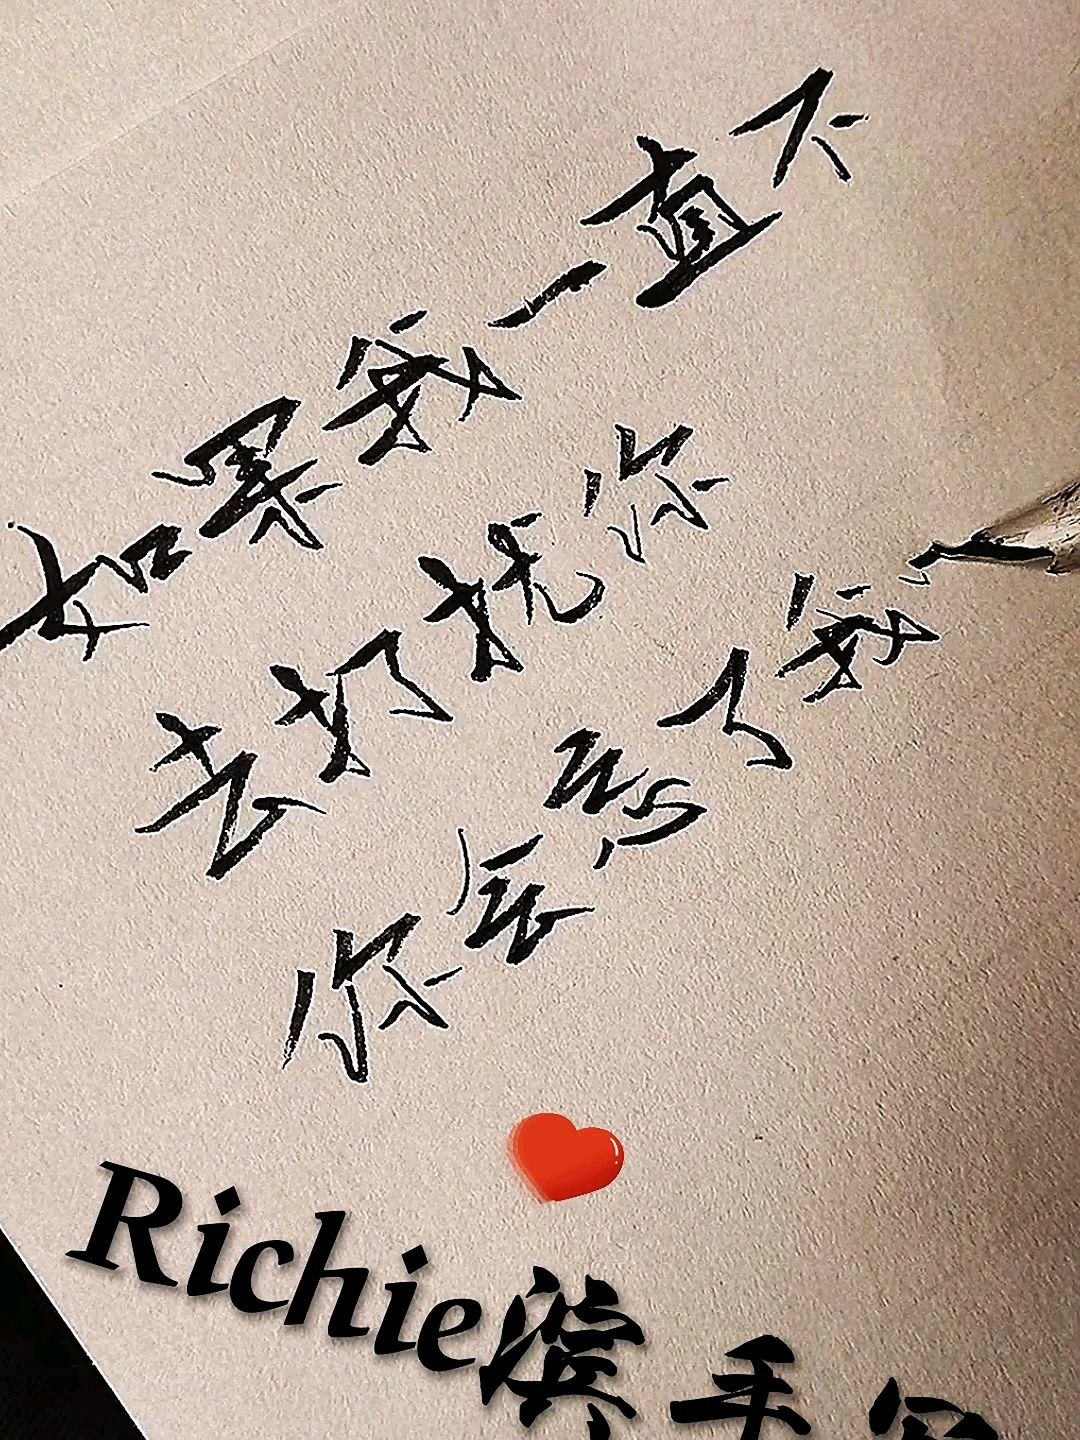 如果我一直不
去打扰你
你会忘了我,
Richie滨手写